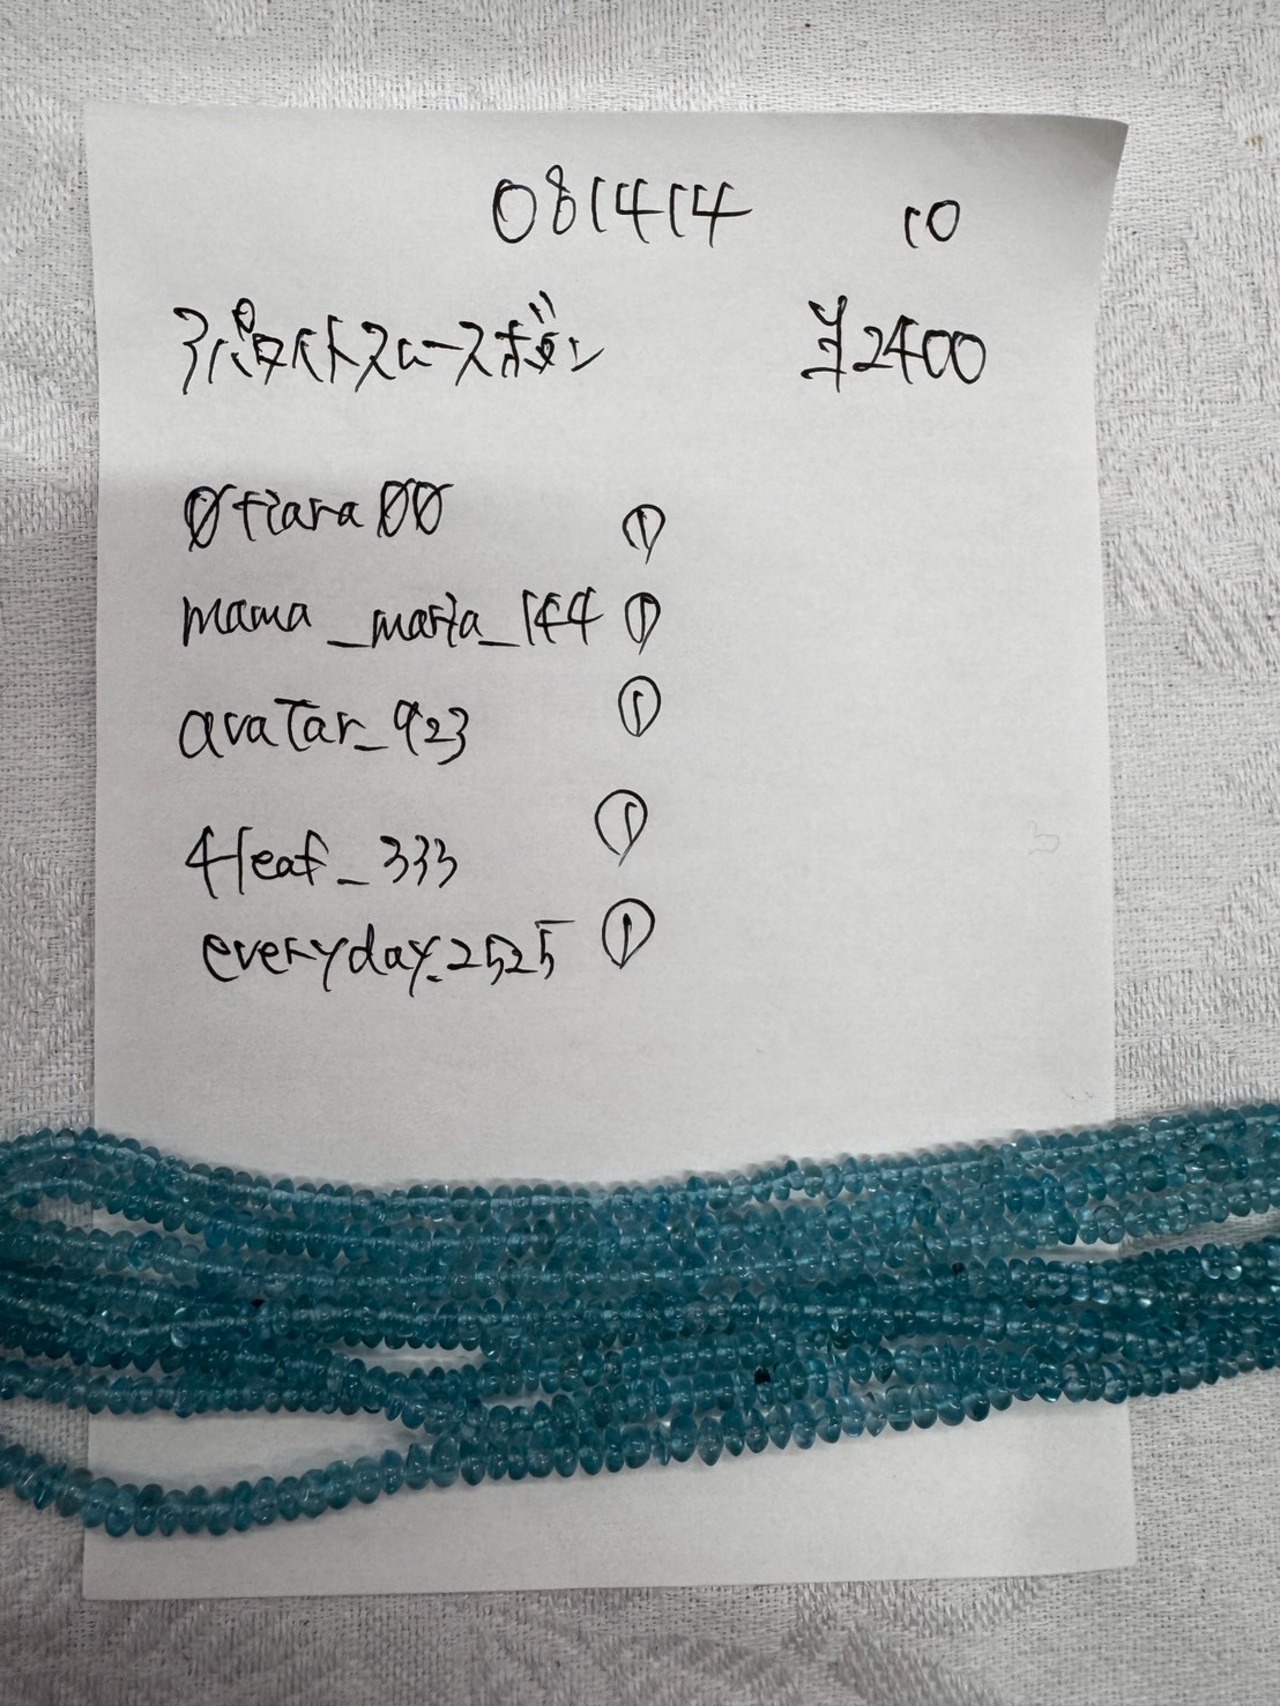 081414 10
アパタイトスムースボタン ¥2400
0tiara00 ①
mama_maria_144 ①
avatar_923 ①
4leaf_333 ①
everyday.2525 ①